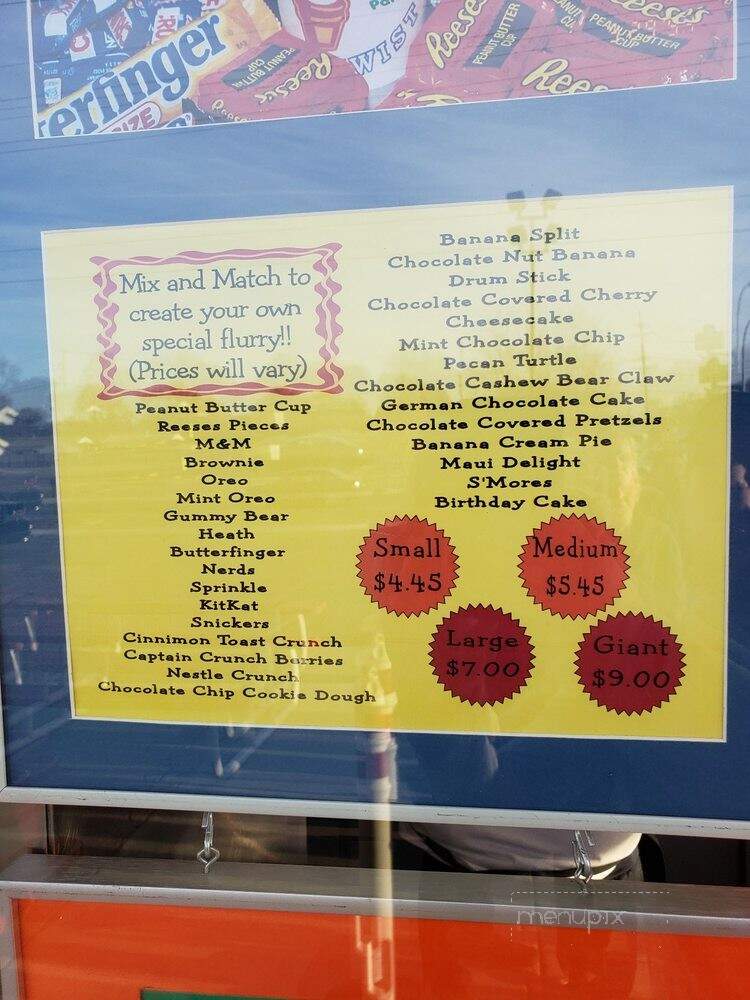 erfinger
Reese's
PEANUT BUTTER
CUP
TWIST
Reese's
PEANUT BUTTER
CUP
Reese's
PEANUT BUTTER
CUP
Mix and Match to
create your own
special flurry!!
(Prices will vary)
Peanut Butter Cup
Reeses Pieces
M&M
Brownie
Oreo
Mint Oreo
Gummy Bear
Heath
Butterfinger
Nerds
Sprinkle
KitKat
Snickers
Cinnimon Toast Crunch
Captain Crunch Berries
Nestle Crunch
Chocolate Chip Cookie Dough
Banana Split
Chocolate Nut Banana
Drum Stick
Chocolate Covered Cherry
Cheesecake
Mint Chocolate Chip
Pecan Turtle
Chocolate Cashew Bear Claw
German Chocolate Cake
Chocolate Covered Pretzels
Banana Cream Pie
Maui Delight
S'Mores
Birthday Cake
Small
$4.45
Medium
$5.45
Large
$7.00
Giant
$9.00
menupix